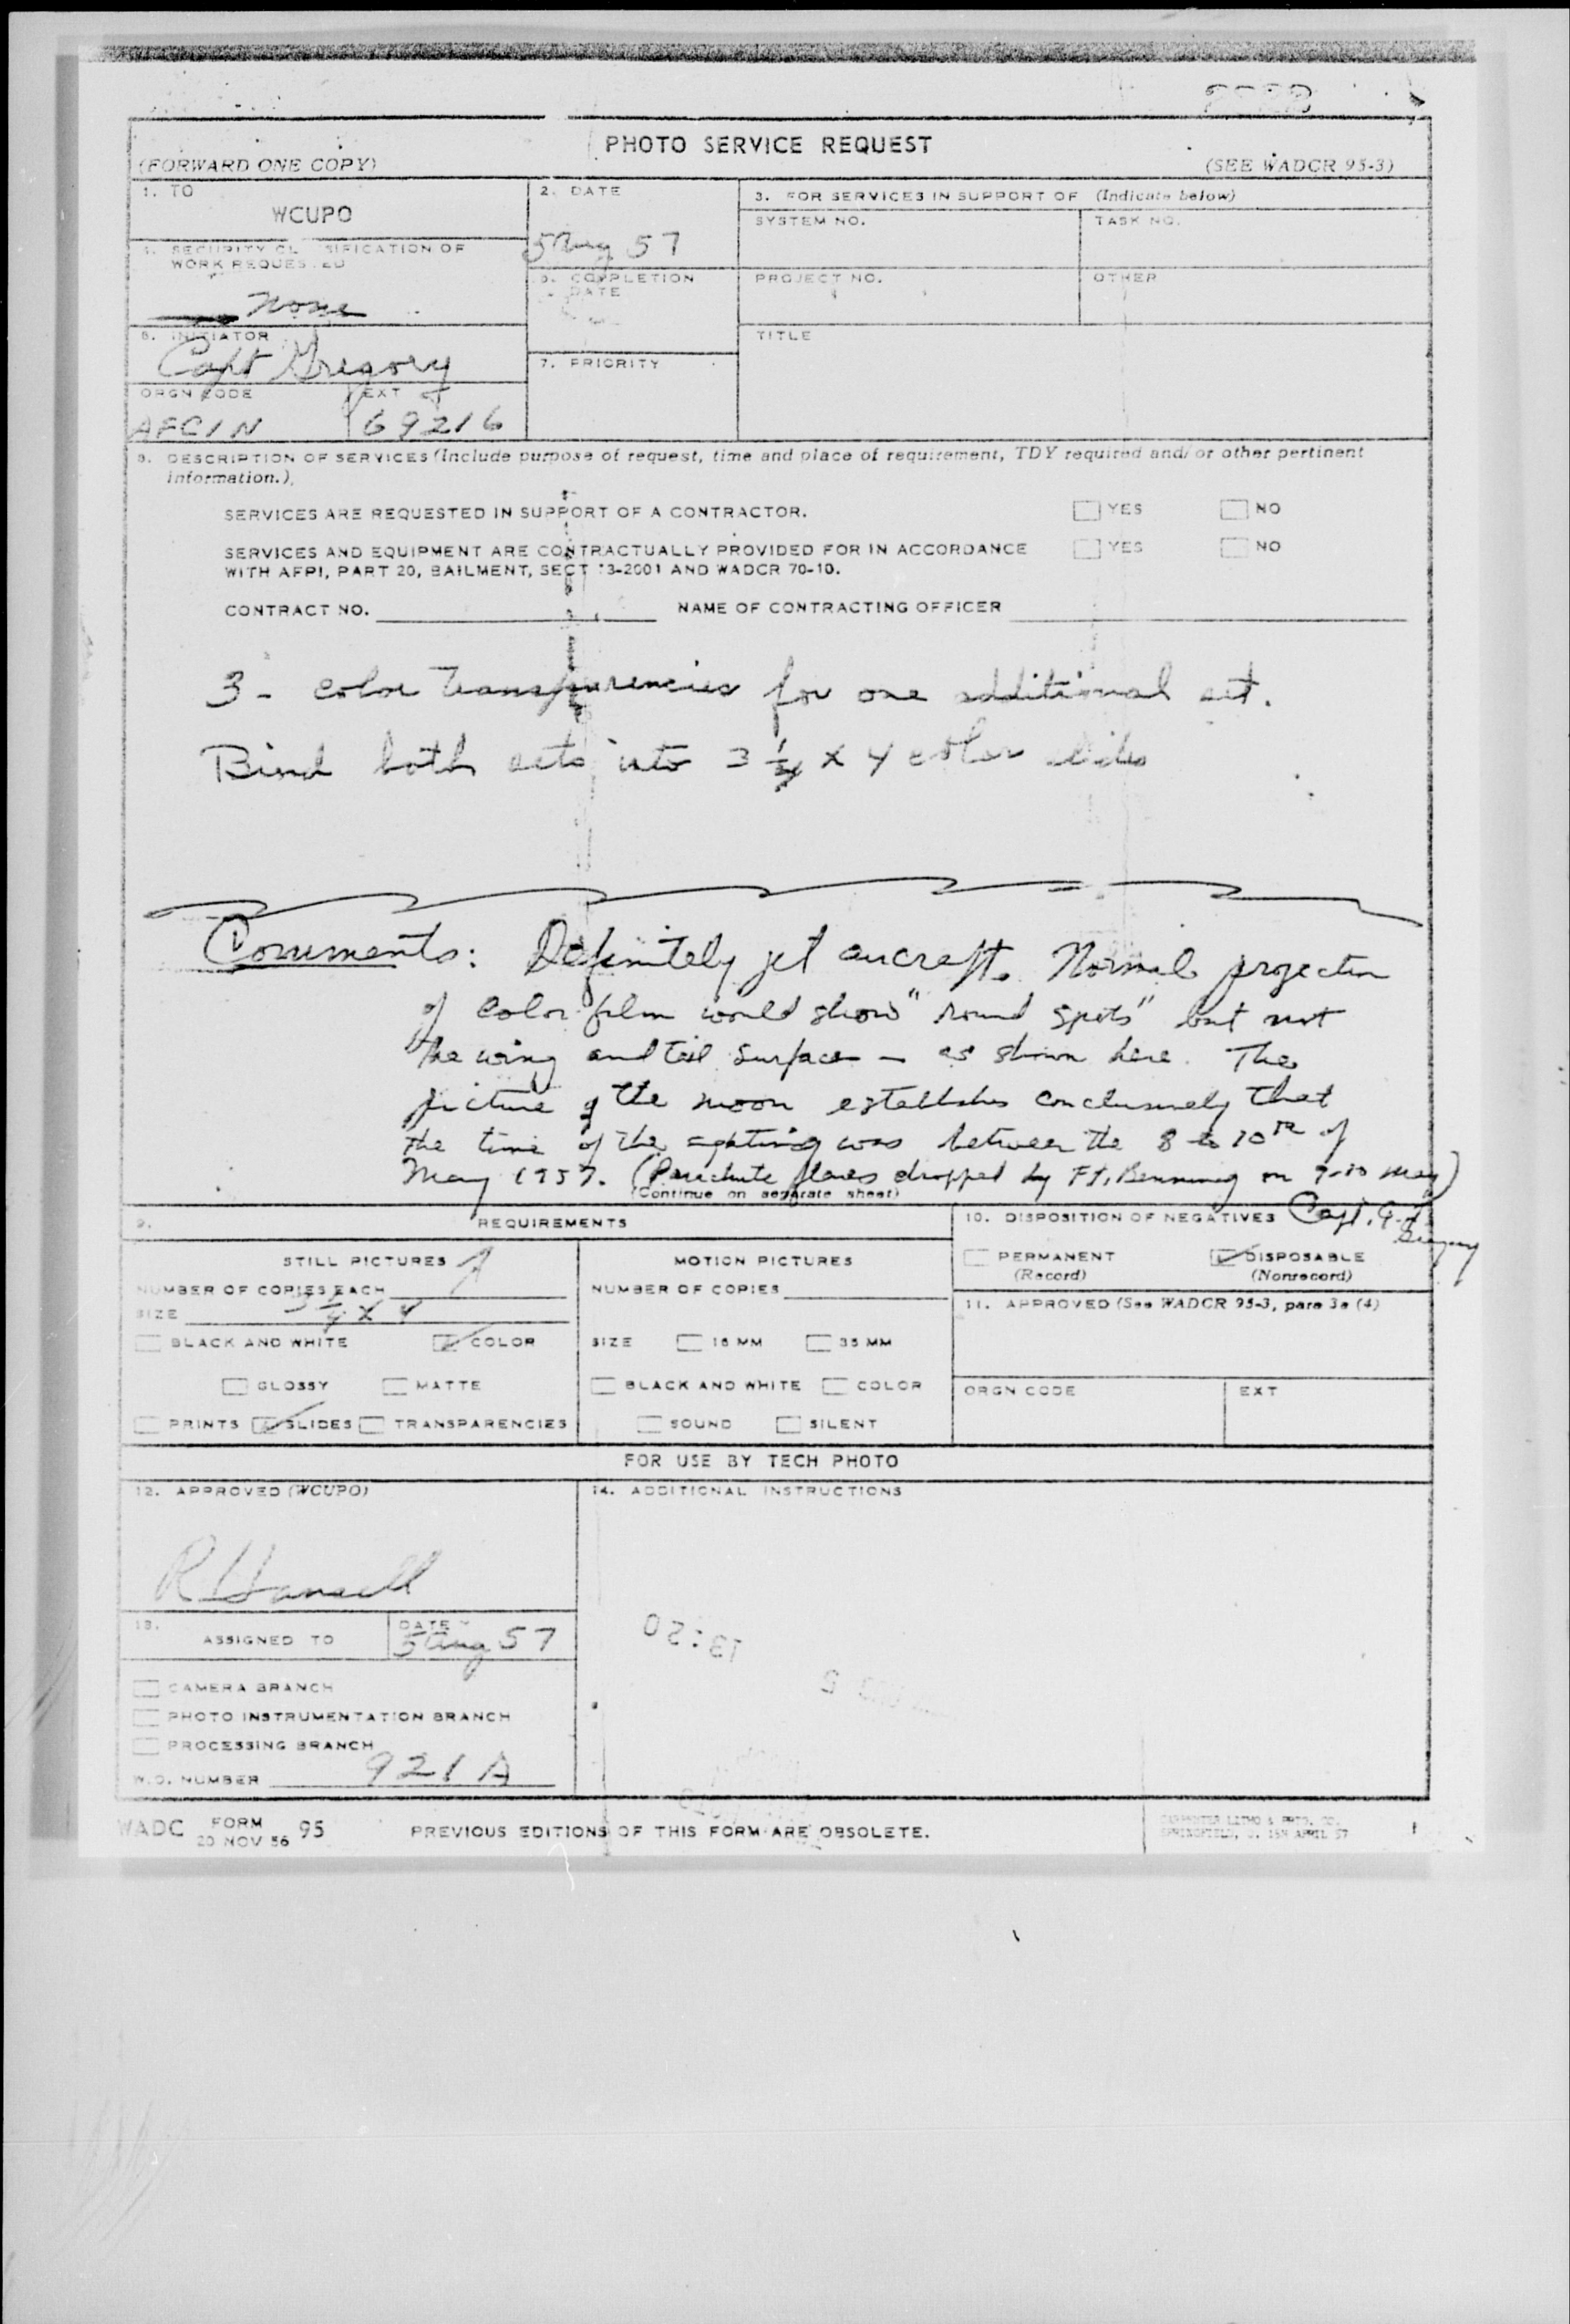 PHOTO SERVICE REQUEST
(FORWARD ONE COPY)
(SEE WADCR 95-3)
1. TO
WCUPO
2. DATE
5 Aug 57
3. FOR SERVICES IN SUPPORT OF (Indicate below)
SYSTEM NO.
TASK NO.
PROJECT NO.
OTHER
TITLE
4. SECURITY CL SIFICATION OF
WORK REQUES ED
None
COMPLETION
DATE
6. INITIATOR
Capt Gregory
7. PRIORITY
ORGN CODE
EXT
AFCIN
69216
8. DESCRIPTION OF SERVICES (Include purpose of request, time and place of requirement, TDY required and/or other pertinent
information.)
SERVICES ARE REQUESTED IN SUPPORT OF A CONTRACTOR. YES NO
SERVICES AND EQUIPMENT ARE CONTRACTUALLY PROVIDED FOR IN ACCORDANCE YES NO
WITH AFPI, PART 20, BAILMENT, SECT 13-2001 AND WADCR 70-10.
CONTRACT NO. NAME OF CONTRACTING OFFICER
3 - color transparencies for one additional set.
Bind both sets into 3 1/4 x 4 color slides
Comments: Definitely jet aircraft. Normal projection
of color film would show "round spots" but not
the wing and tail surface - as shown here. The
picture of the moon establishes conclusively that
the time of the sighting was between the 8 to 10th of
May 1957. (Parachute flares dropped by Ft. Benning on 9-10 May)
(Continue on separate sheet)
Capt. G.T. Gregory
9. REQUIREMENTS
10. DISPOSITION OF NEGATIVES
STILL PICTURES
MOTION PICTURES
PERMANENT
(Record)
DISPOSABLE
(Nonrecord)
NUMBER OF COPIES EACH 1
NUMBER OF COPIES
SIZE 3 1/4 x 4
11. APPROVED (See WADCR 95-3, para 3e (4)
BLACK AND WHITE COLOR
SIZE 16 MM 35 MM
GLOSSY MATTE
BLACK AND WHITE COLOR
ORGN CODE
EXT
PRINTS SLIDES TRANSPARENCIES
SOUND SILENT
FOR USE BY TECH PHOTO
12. APPROVED (WCUPO)
14. ADDITIONAL INSTRUCTIONS
13.
ASSIGNED TO
DATE
5 Aug 57
13:20
CAMERA BRANCH
PHOTO INSTRUMENTATION BRANCH
PROCESSING BRANCH
W.O. NUMBER 921A
WADC FORM 95
20 NOV 56
PREVIOUS EDITIONS OF THIS FORM ARE OBSOLETE.